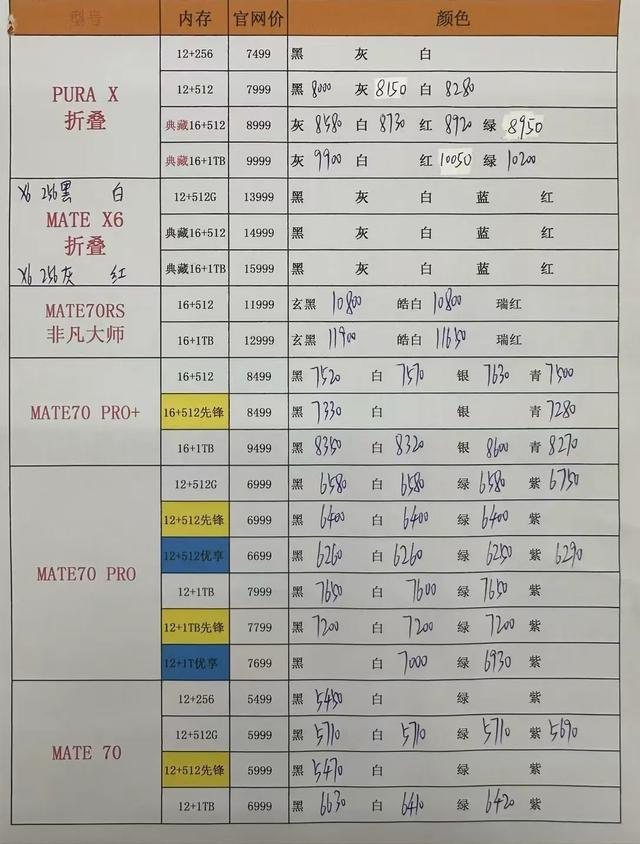 型号 内存 官网价 颜色
PURA X 折叠
12+256 7499 黑 灰 白
12+512 7999 黑 8000 灰 8150 白 8280
典藏16+512 8999 灰 8580 白 8730 红 8920 绿 8950
典藏16+1TB 9999 灰 9900 白 红 10050 绿 10200
X6 256黑 白
MATE X6 折叠
X6 256灰 红
12+512G 13999 黑 灰 白 蓝 红
典藏16+512 14999 黑 灰 白 蓝 红
典藏16+1TB 15999 黑 灰 白 蓝 红
MATE70RS 非凡大师
16+512 11999 玄黑 10800 皓白 10800 瑞红
16+1TB 12999 玄黑 11900 皓白 11650 瑞红
MATE70 PRO+
16+512 8499 黑 7520 白 7570 银 7630 青 7500
16+512先锋 8499 黑 7330 白 银 青 7280
16+1TB 9499 黑 8350 白 8320 银 8600 青 8270
MATE70 PRO
12+512G 6999 黑 6580 白 6580 绿 6580 紫 6750
12+512先锋 6999 黑 6400 白 6400 绿 6400 紫
12+512优享 6699 黑 6260 白 6260 绿 6250 紫 6290
12+1TB 7999 黑 7650 白 7600 绿 7650 紫
12+1TB先锋 7799 黑 7200 白 7200 绿 7200 紫
12+1T优享 7699 黑 白 7000 绿 6930 紫
MATE 70
12+256 5499 黑 5450 白 绿 紫
12+512G 5999 黑 5710 白 5710 绿 5710 紫 5690
12+512先锋 5999 黑 5470 白 绿 紫
12+1TB 6999 黑 6630 白 6410 绿 6420 紫